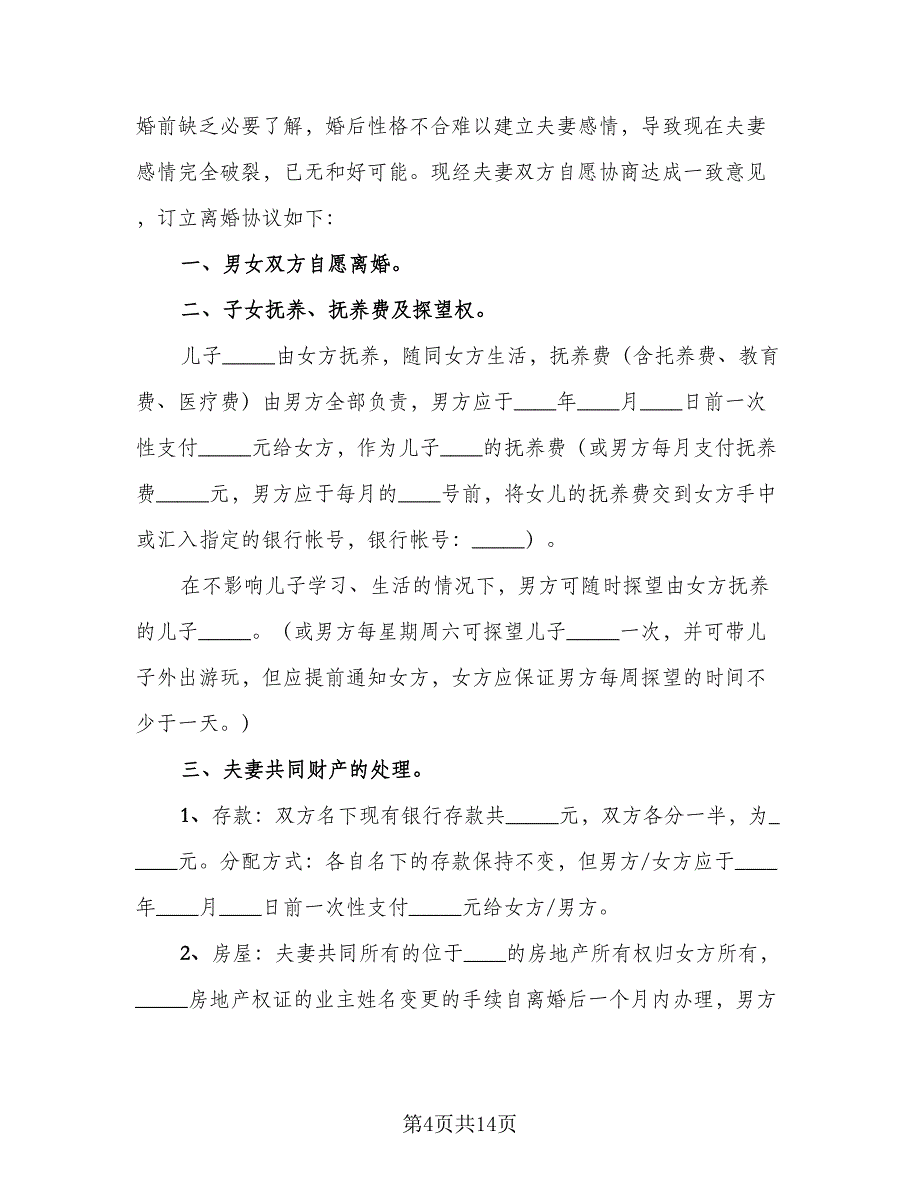 婚前缺乏必要了解，婚后性格不合难以建立夫妻感情，导致现在夫妻
感情完全破裂，已无和好可能。现经夫妻双方自愿协商达成一致意见
，订立离婚协议如下：
一、男女双方自愿离婚。
二、子女抚养、抚养费及探望权。
儿子_____由女方抚养，随同女方生活，抚养费（含托养费、教育
费、医疗费）由男方全部负责，男方应于____年____月____日前一次
性支付_____元给女方，作为儿子____的抚养费（或男方每月支付抚养
费_____元，男方应于每月的____号前，将女儿的抚养费交到女方手中
或汇入指定的银行帐号，银行帐号：_____）。
在不影响儿子学习、生活的情况下，男方可随时探望由女方抚养
的儿子_____。（或男方每星期周六可探望儿子_____一次，并可带儿
子外出游玩，但应提前通知女方，女方应保证男方每周探望的时间不
少于一天。）
三、夫妻共同财产的处理。
1、存款：双方名下现有银行存款共_____元，双方各分一半，为_
____元。分配方式：各自名下的存款保持不变，但男方/女方应于____
年____月____日前一次性支付_____元给女方/男方。
2、房屋：夫妻共同所有的位于____的房地产所有权归女方所有，
_____房地产权证的业主姓名变更的手续自离婚后一个月内办理，男方
第4页共14页